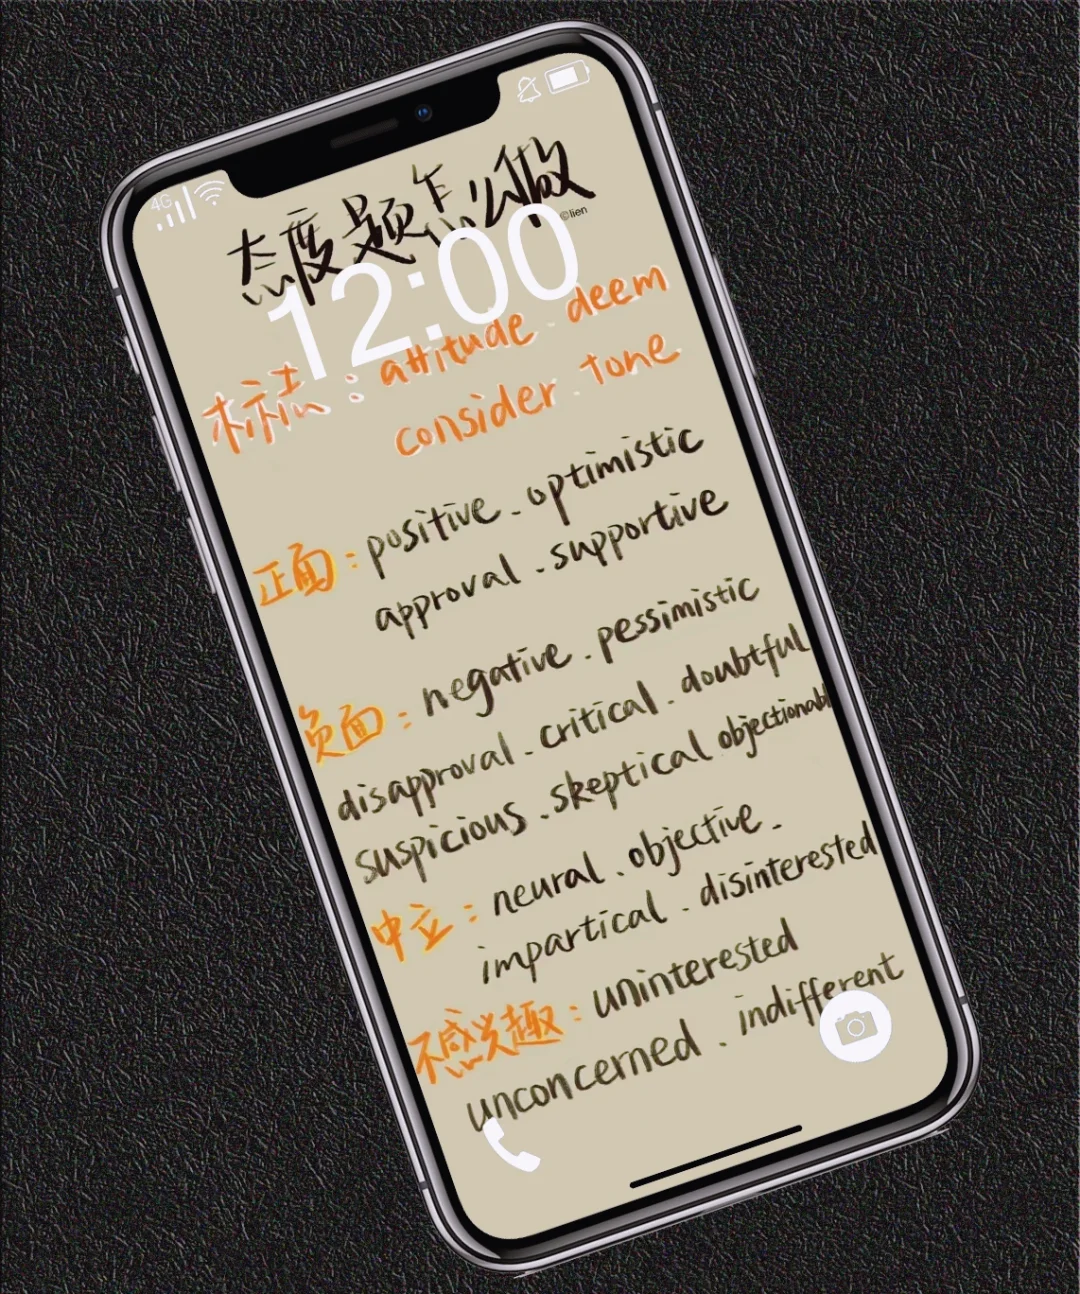 4G
态度题怎么做
©lien
12:00
标志：attitude . deem
consider . tone
正面：positive . optimistic
approval . supportive
负面：negative . pessimistic
disapproval . critical . doubtful
suspicious . skeptical objectionabl
中立：neural . objective .
impartical . disinterested
不感兴趣：uninterested
unconcerned . indifferent